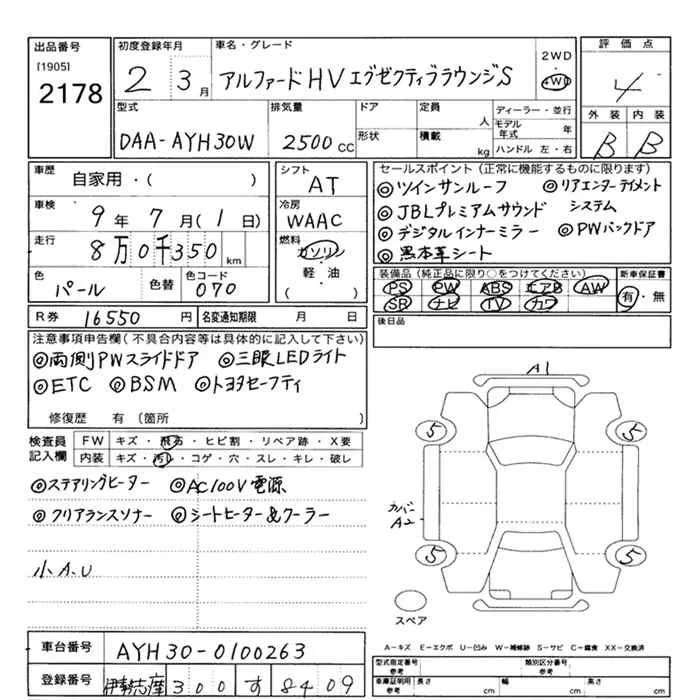 出品番号
[1905]
2178
初度登録年月
2 3月
車名・グレード
アルファードHV エグゼクティブラウンジS
2WD
4WD
評価点
4
型式
DAA-AYH30W
排気量
2500 CC
ドア
形状
定員 人
積載 kg
ディーラー・並行
モデル年式 年
ハンドル 左・右
外装 内装
B B
車歴
自家用・( )
シフト
AT
車検
9年 7月(1日)
冷房
WAAC
走行
8万0千350 km
燃料
ガソリン
軽・油
( )
色
パール
色替
色コード
070
R券 16550円
名変通知期限 月 日
セールスポイント(正常に機能するものに限ります)
◎ツインサンルーフ ◎リアエンターテイメント
システム
◎JBLプレミアムサウンド
◎デジタルインナーミラー ◎PWバックドア
◎黒本革シート
装備品(純正品に限り○をつけてください)
PS PW ABS エアB AW
SR ナビ TV カワ
新車保証書
有・無
後日品
注意事項申告欄(不具合内容等は具体的に記入して下さい)
◎両側PWスライドドア ◎三眼LEDライト
◎ETC ◎BSM ◎トヨタセーフティ
修復歴 有(箇所 )
検査員記入欄
FW キズ・飛石・ヒビ割・リペア跡・X要
内装 キズ・汚れ・コゲ・穴・スレ・キレ・破レ
◎ステアリングヒーター ◎AC100V電源
◎クリアランスソナー ◎シートヒーター&クーラー
小A、U
A1
5 5
カバー
A2
5 5
スペア
A-キズ E-エクボ U-凹み W-補修跡 S-サビ C-腐食 XX-交換済
車台番号 AYH30-0100263
登録番号 伊勢志摩 300 す 8409
型式指定番号 参考
類別区分番号 参考
車庫証明用 参考 長さ cm 幅 cm 高さ cm